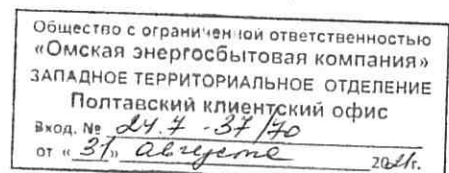 Общество с ограниченной ответственностью
«Омская энергосбытовая компания»
ЗАПАДНОЕ ТЕРРИТОРИАЛЬНОЕ ОТДЕЛЕНИЕ
Полтавский клиентский офис
Вход. № 24.7 - 37/70
от «31» августа 2021г.